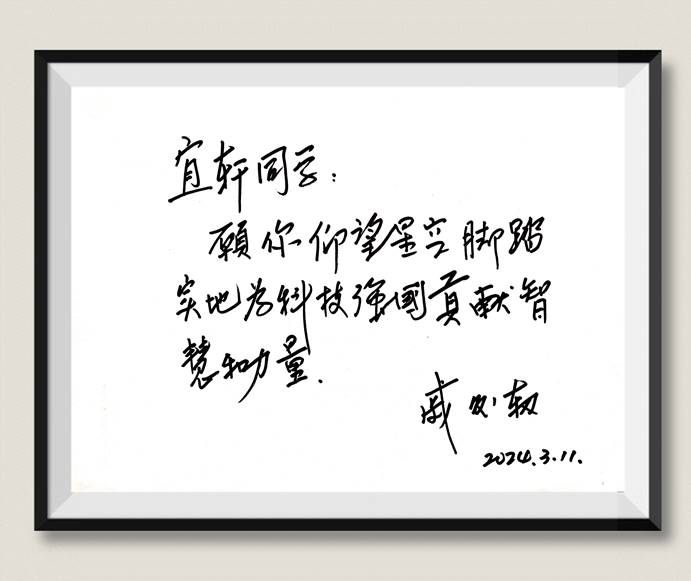 宜轩同学：
願你仰望星空脚踏
实地为科技强國貢献智
慧和力量.
戚发轫
2024.3.11.